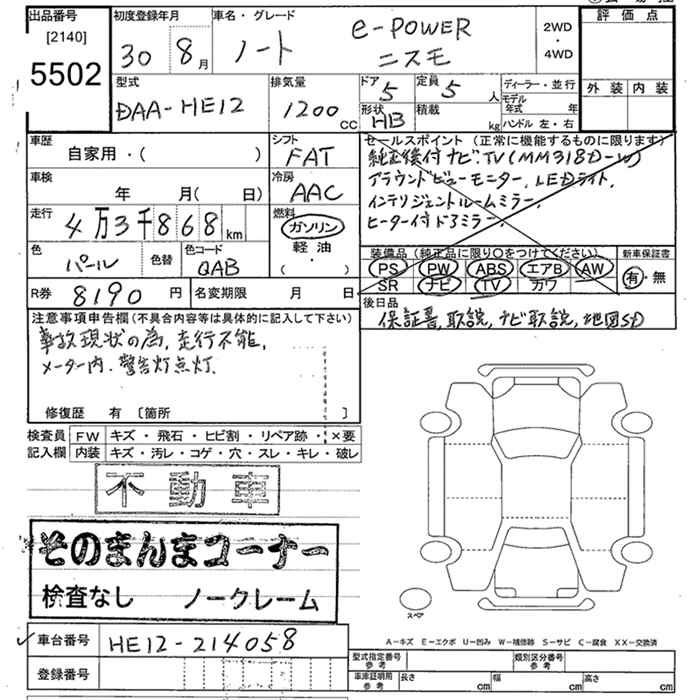 出品番号
[2140]
5502
初度登録年月
30 8月
車名・グレード
ノート e-POWER ニスモ
2WD
・
4WD
評価点
外装 内装
型式
DAA-HE12
排気量
1200 CC
ドア 5
定員 5 人
形状 HB
積載 kg
ディーラー・並行
モデル年式 年
ハンドル 左・右
車歴
自家用・( )
シフト
FAT
車検
年 月( 日)
冷房
AAC
走行
4万3千868km
燃料
ガソリン
軽油
( ・ )
色
パール
色替
色コード
QAB
R券 8190 円
名変期限 月 日
セールスポイント (正常に機能するものに限ります)
純正後付ナビ.TV(MM318D-W)
アラウンドビューモニター, LEDライト,
インテリジェントルームミラー,
ヒーター付ドアミラー,
装備品 (純正品に限り○をつけてください)
PS PW ABS エアB AW
SR ナビ TV カワ
新車保証書
有・無
後日品
保証書, 取説, ナビ取説, 地図SD
注意事項申告欄 (不具合内容等は具体的に記入して下さい)
事故現状の為, 走行不能,
メーター内. 警告灯点灯.
修復歴 有 [箇所 ]
検査員 FW キズ・飛石・ヒビ割・リペア跡・×要
記入欄 内装 キズ・汚レ・コゲ・穴・スレ・キレ・破レ
不動車
そのまんまコーナー
検査なし ノークレーム
スペア
A-キズ E-エクボ U-凹み W-補修跡 S-サビ C-腐食 XX-交換済
車台番号 HE12-214058
登録番号
型式指定番号
参考
類別区分番号
参考
車庫証明用
参考
長さ cm 幅 cm 高さ cm